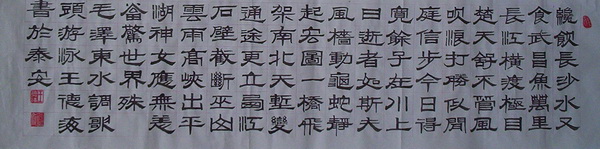 纔飲長沙水又
食武昌魚萬里
長江橫渡極目
楚天舒不管風
吹浪打勝似閒
庭信步今日得
寬餘子在川上
曰逝者如斯夫
風檣動龜蛇靜
起宏圖一橋飛
架南北天塹變
通途更立西江
石壁截斷巫山
雲雨高峽出平
湖神女應無恙
當驚世界殊
毛澤東水調歌
頭游泳王德海
書於泰安